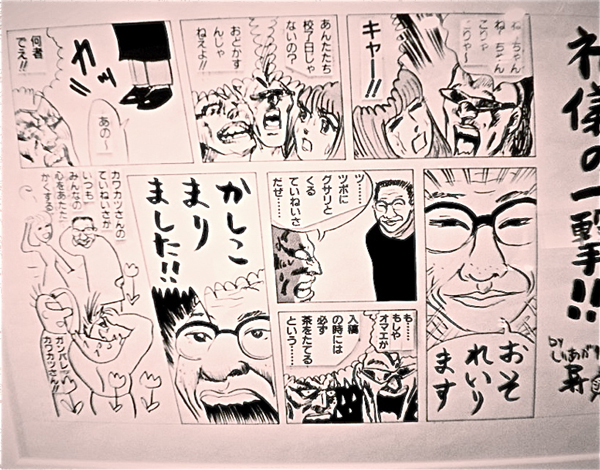 礼儀の一撃!!
by しりあがり
寿
ねーちゃん
ねーちゃん
こりゃ
こりゃ〜
キャー!!
あんたたち
校了日じゃ
ないの?
おどかす
んじゃ
ねえよ!!
カッ
あの〜
何者
でえ!!
おそ
れいり
ます
ツ……
ツボに
グサリと
くる
ていねいさ
だぜ……
も……
もしゃ
オマエが
入稿
の時には
必ず
茶をたてる
という……
かしこ
まり
ました!!
カワカツさんの
ていねいさが
いつも
みんなの
心をあたた
かくする
ガンバレ
カワカツさん!!